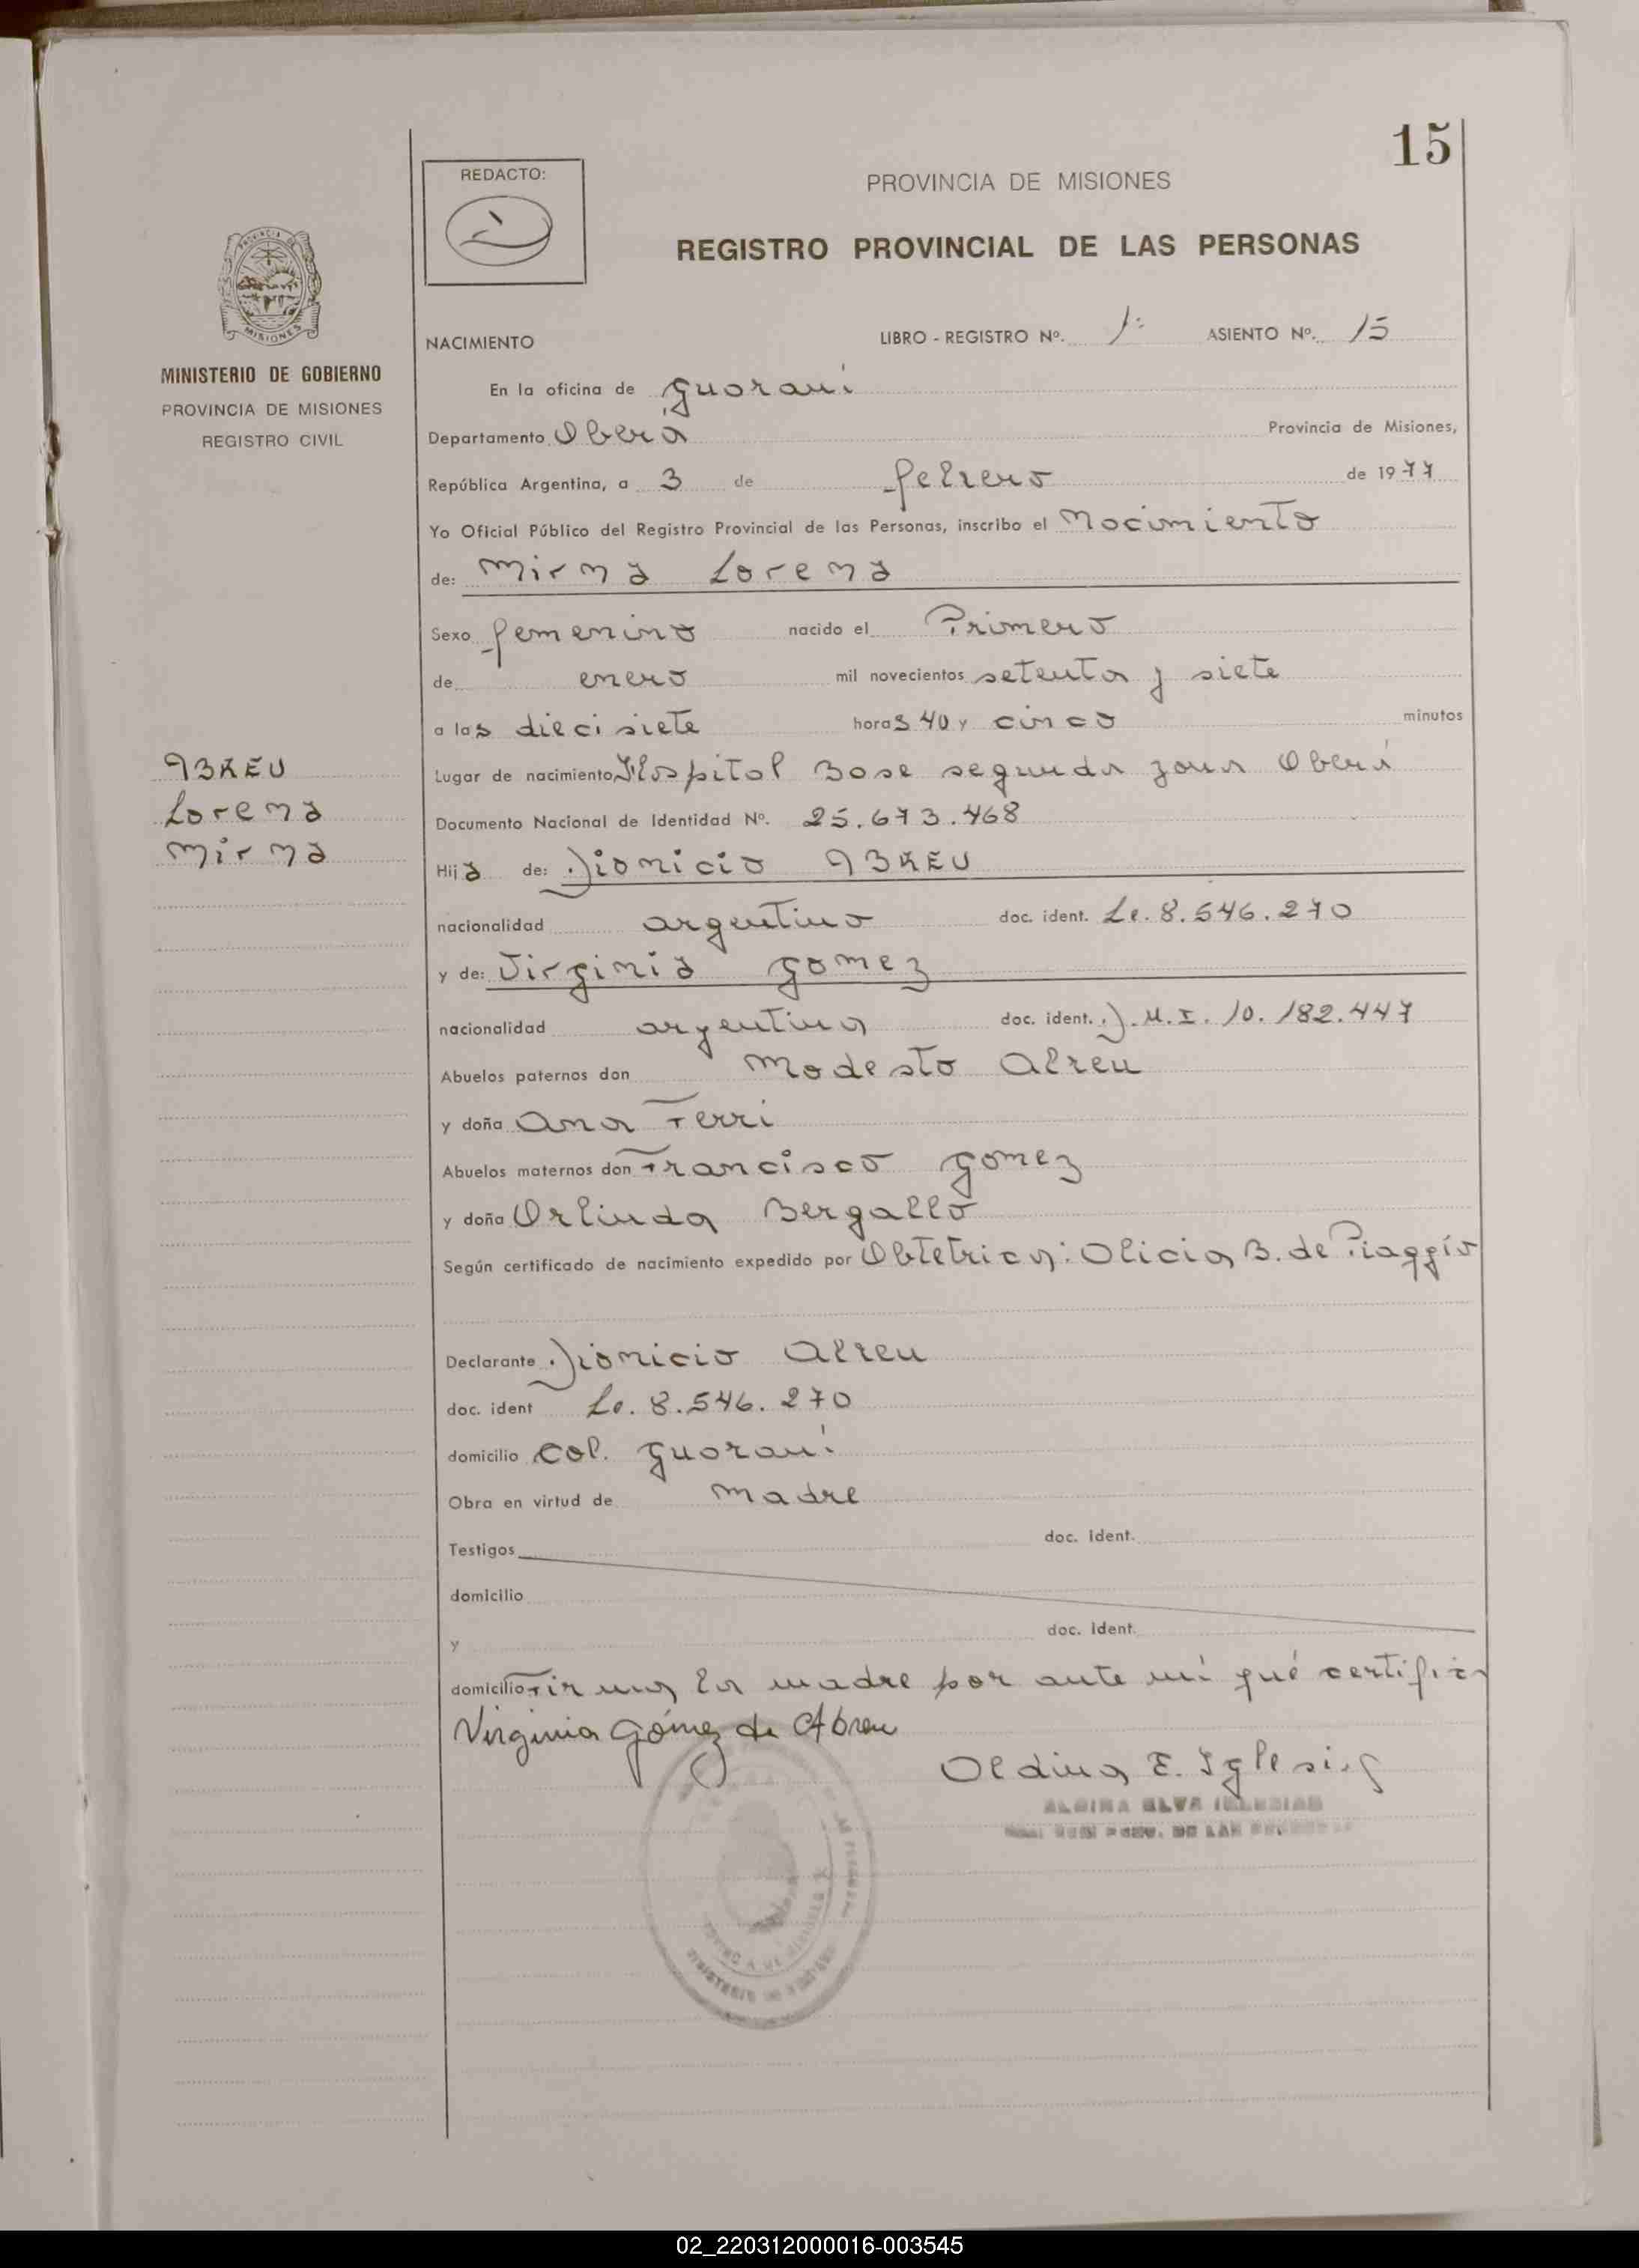 15
REDACTO:
PROVINCIA DE MISIONES
REGISTRO PROVINCIAL DE LAS PERSONAS
MISIONES
MINISTERIO DE GOBIERNO
PROVINCIA DE MISIONES
REGISTRO CIVIL
NACIMIENTO LIBRO - REGISTRO Nº. 1º ASIENTO Nº. 15
En la oficina de Guaraní
Departamento Oberá Provincia de Misiones,
República Argentina, a 3 de febrero de 1977
Yo Oficial Público del Registro Provincial de las Personas, inscribo el Nacimiento
de: Mirna Lorena
Sexo femenino nacido el Primero
de enero mil novecientos setenta y siete
a las diecisiete horas 40 y cinco minutos
Lugar de nacimiento Hospital Base segunda zona Oberá
Documento Nacional de Identidad Nº. 25.673.468
Hija de: Dionicio ABREU
nacionalidad argentino doc. ident. Le. 8.546.270
y de: Virginia Gomez
nacionalidad argentina doc. ident. D.N.I. 10.182.447
Abuelos paternos don Modesto Abreu
y doña Ana Ferri
Abuelos maternos don Francisco Gomez
y doña Orlinda Bergallo
Según certificado de nacimiento expedido por Obtetrica: Alicia B. de Piaggio
Declarante Dionicio Abreu
doc. ident Le. 8.546.270
domicilio Col. Guaraní
Obra en virtud de madre
Testigos doc. ident.
domicilio
y doc. ident.
domicilio Firma la madre por ante mí qué certifica
Virginia Gómez de Abreu
Aldina E. Iglesias
ELVA IGLESIAS
DE LAS
ABREU
Lorena
Mirna
02_220312000016-003545